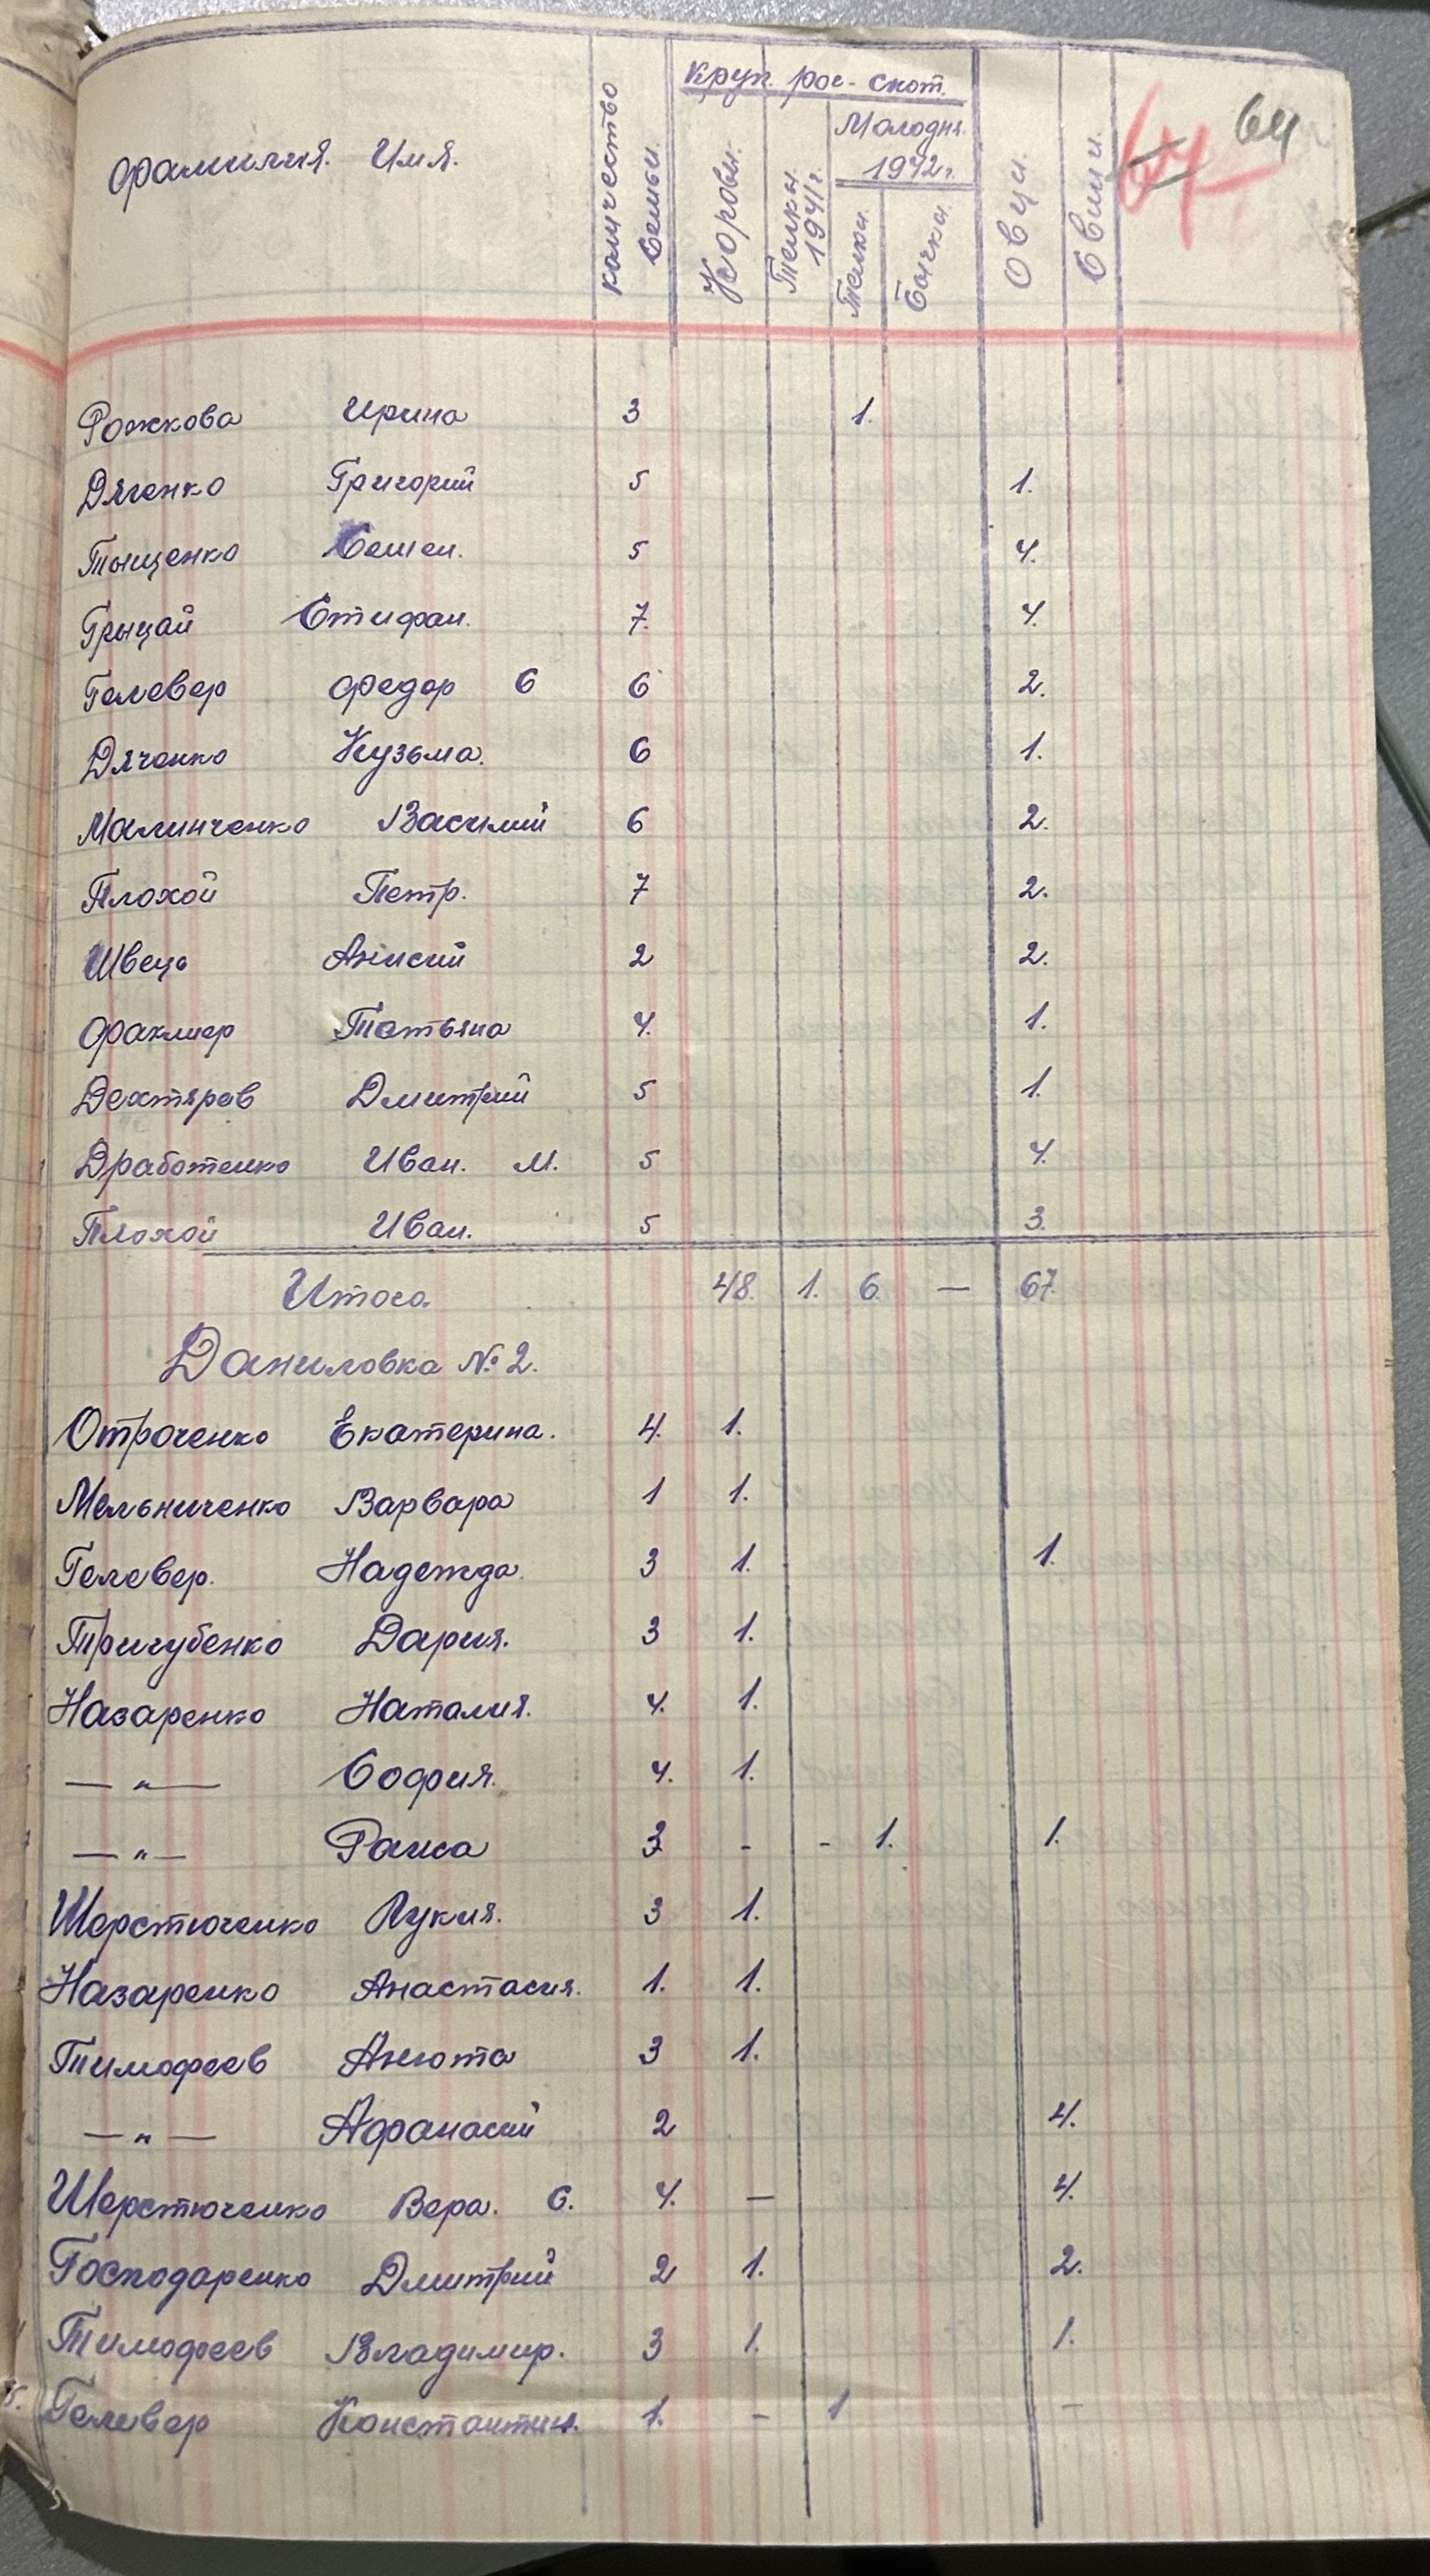 64
64
Фамилия. Имя.
количество семьи.
Круп. рог. скот.
Коровы.
Телки 1941г.
Молодня. 1942г.
Телки.
Бычки.
Овци.
Свини.
Рожкова Ирина 3 1.
Дяченко Григорий 5 1.
Тыщенко Семен. 5 4.
Грыцай Стифан. 7. 4.
Гелевер Федор С 6 2.
Дяченко Кузьма. 6 1.
Малинченко Василий 6 2.
Плохой Петр. 7 2.
Швець Анисий 2 2.
Факлиер Татьяна 4. 1.
Дехтярев Дмитрий 5 1.
Дработенко Иван. М. 5 4.
Плохой Иван. 5 3.
Итого. 48. 1. 6 — 67.
Даниловка № 2.
Отроченко Екатерина. 4. 1.
Мельниченко Варвара 1 1.
Гелевер. Надежда. 3 1. 1.
Тригубенко Дария. 3 1.
Назаренко Наталия. 4. 1.
— " — София. 4. 1.
— " — Раиса 3 - - 1. 1.
Шерстюченко Лукия. 3 1.
Назаренко Анастасия. 1. 1.
Тимофеев Анюта 3 1.
— " — Афанасий 2 4.
Шерстюченко Вера. С. 4. — 4.
Господаренко Дмитрий 2 1. 2.
Тимофеев Владимир. 3 1. 1.
Гелевер Константин. 1. - 1 -